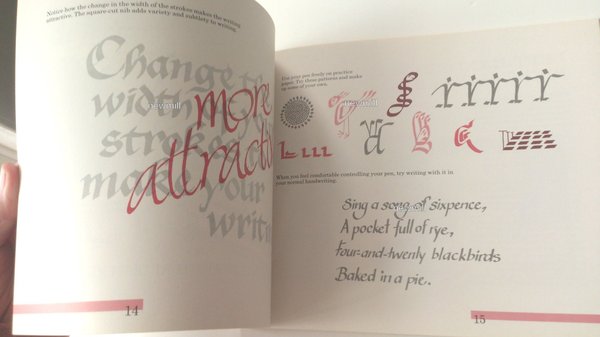 Notice how the change in the width of the strokes makes the writing
attractive. The square-cut nib adds variety and subtlety to writing.
Change the
width
more
strok
attracti
make your
writi
14
Use your pen freely on practice
paper. Try these patterns and make
up some of your own.
When you feel comfortable controlling your pen, try writing with it in
your normal handwriting.
Sing a song of sixpence,
A pocket full of rye,
Four-and-twenty blackbirds
Baked in a pie.
15
newmill
newmill
newmill